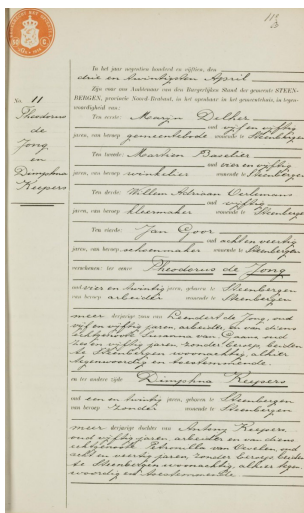 No. 11
Theodorus
de
Jong
en
Dimphna
Kuepers
In het jaar negentien honderd en vijftien, den
drie en twintigsten April
Zijn voor ons Ambtenaar van den Burgerlijken Stand der gemeente STEEN-
BERGEN, provincie Noord-Brabant, in het openbaar in het gemeentehuis, in tegen-
woordigheid van:
Ten eerste: Marijn Delker
oud vijf en vijftig
jaren, van beroep gemeentebode wonende te Steenbergen
Ten tweede: Martien Baselier
oud vier en vijftig
jaren, van beroep winkelier wonende te Steenbergen
Ten derde: Willem Adriaan Oerlemans
oud vijftig
jaren, van beroep kleermaker wonende te Steenbergen
Ten vierde: Jan Goor
oud acht en veertig
jaren, van beroep schoenmaker wonende te Steenbergen
verschenen: ter eenre Theodorus de Jong
oud vier en twintig jaren, geboren te Steenbergen
van beroep arbeider wonende te Steenbergen
meerderjarige zoon van Leendert de Jong, oud
vijf en vijftig jaren, arbeider en van diens
echtgenoote Susanna van Daan, oud
zeven en vijftig jaren, zonder beroep, beiden
te Steenbergen woonachtig, alhier
tegenwoordig en toestemmende
en ter andere zijde Dimphna Kuepers
oud een en twintig jaren, geboren te Steenbergen
van beroep zonder wonende te Steenbergen
meerderjarige dochter van Antony Kuepers
oud vijftig jaren, arbeider en van diens
echtgenoote van oud
acht en veertig jaren, zonder beroep, beiden
te Steenbergen woonachtig, alhier tegen-
woordig en toestemmende